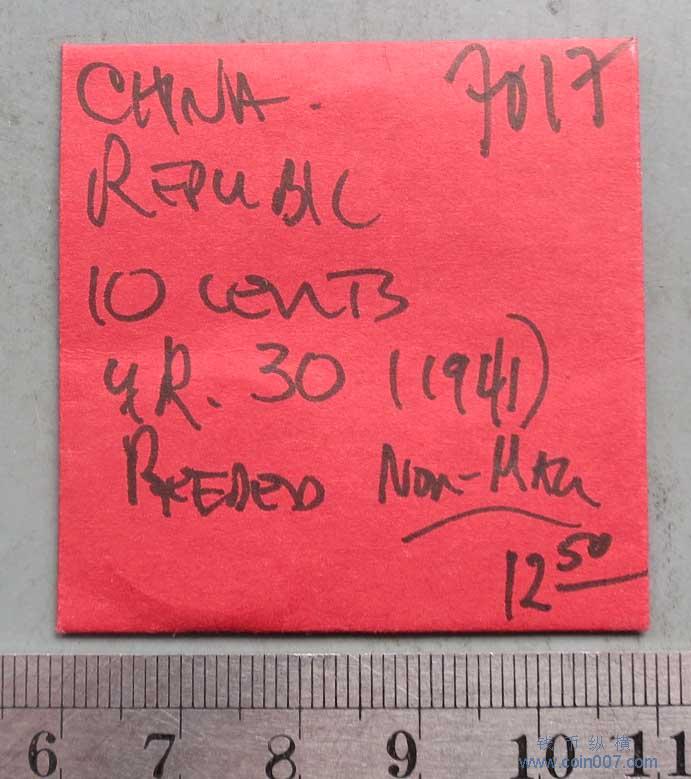 CHINA. 7017
REPUBLIC
10 CENTS
YR. 30 (1941)
REEDED NON-MAG
12 50
6 7 8 9 10 11
钱币纵横
www.coin007.com